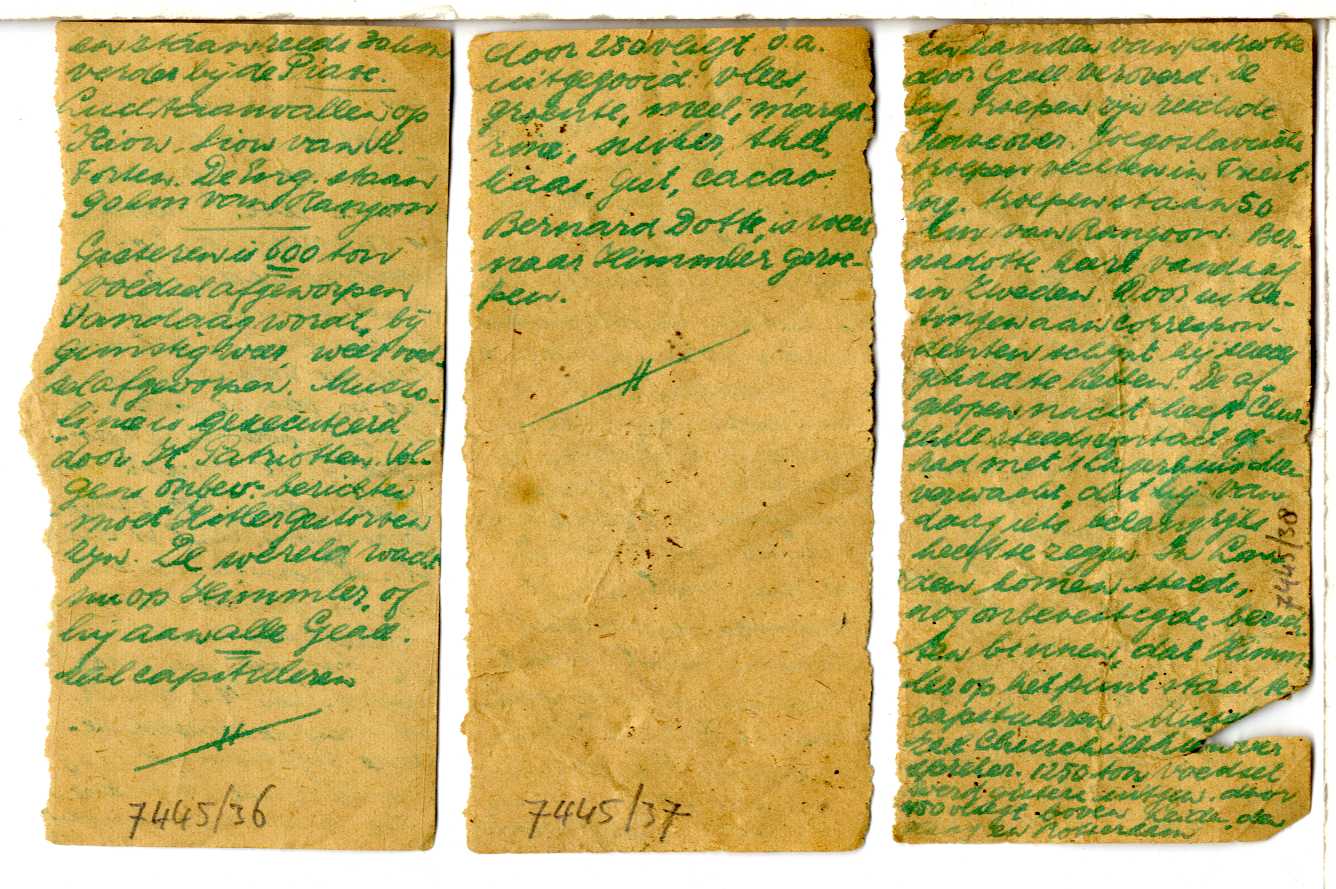 en staan reeds 30 km
verder bij de Piave.
Luchtaanvallen op
Kiow. Siow van Vl.
Forten. De Eng. staan
90 km van Rangoon
Gisteren is 600 ton
voedsel afgeworpen
Vandaag wordt, bij
gunstig weer, weer voed-
sel afgeworpen. Musso-
lini is geexecuteerd
door It. Patriotten. Vol-
gens onbev. berichten
moet Hitler gestorven
zijn. De wereld wacht
nu op Himmler, of
hij aan alle Geall.
zal capituleren
7445/36
door 250 vliegt o.a.
uitgegooid: vlees,
groente, meel, marga-
rine, suiker, thee,
kaas, gist, cacao
Bernard Dotte, is weer
naar Himmler geroe-
pen.
7445/37
in handen van patriotten
door Geall veroverd. De
Eng. troepen zijn reeds de
Piave over. Joegoslavische
troepen vechten in Triest
Eng. troepen staan 50
km van Rangoon. Ber-
nadotte keert vandaag
in Zweden. Door uitla-
tingen aan correspon-
denten schijnt hij succes
gehad te hebben. De af-
gelopen nacht heeft Chur-
chill steeds contact ge-
had met 's Lagerhuis die
verwacht, dat hij van-
daag iets belangrijks
heeft te zeggen. In Lon-
den komen steeds,
nog onbevestigde, berich-
ten binnen, dat Himm-
ler op het punt staat te
capituleren.
zal Churchill hierover
spreken. 1250 ton voedsel
werd gisteren uitgew. door
450 vliegt. boven Leiden, den
Haag en Rotterdam
7445/38